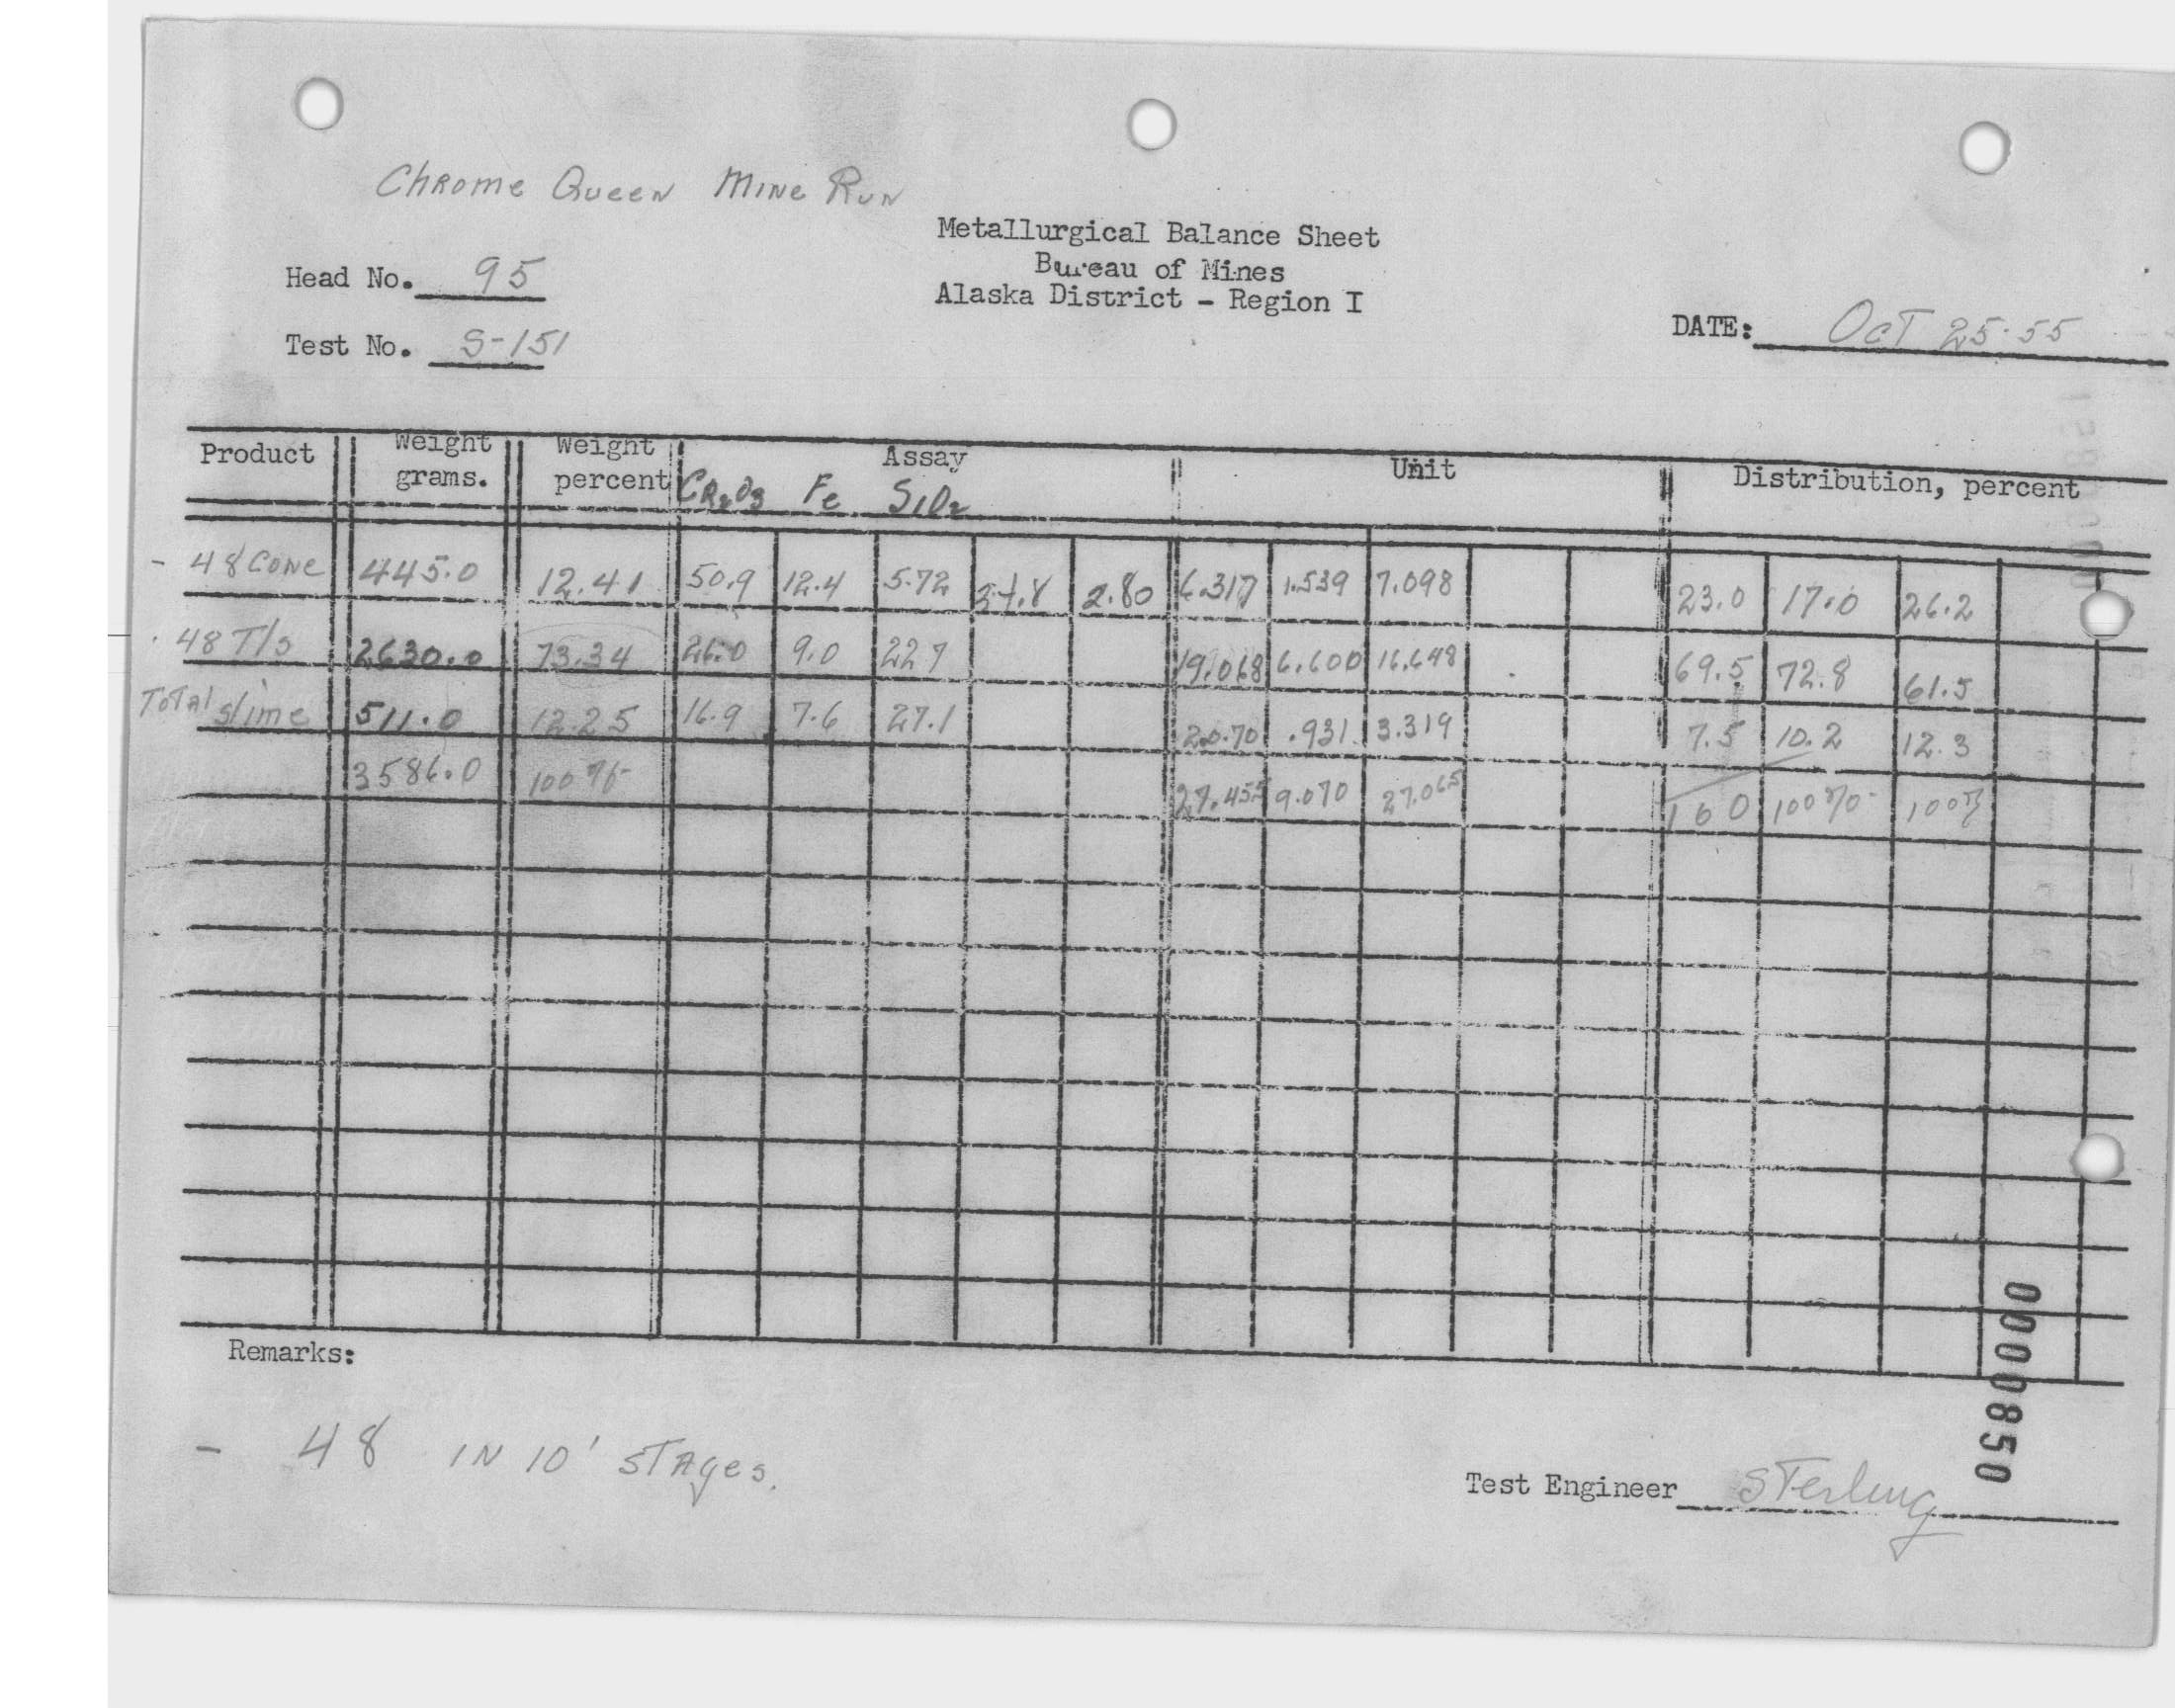 Chrome Queen Mine Run
Metallurgical Balance Sheet
Bureau of Mines
Alaska District - Region I
Head No. 95
Test No. S-151
DATE: Oct 25-55
Product Weight grams. Weight percent Assay Unit Distribution, percent
CR2O3 Fe SiO2
- 48 Conc 445.0 12.41 50.9 12.4 5.72 34.8 2.80 6.317 1.539 7.098 23.0 17.0 26.2
- 48 T/s 2630.0 73.34 26.0 9.0 22.7 19.068 6.600 16.648 69.5 72.8 61.5
Total slime 511.0 12.25 16.9 7.6 27.1 20.70 .931 3.319 7.5 10.2 12.3
3586.0 100% 27.455 9.070 27.065 100 100% 100%
Remarks:
- 48 IN 10' STAges.
Test Engineer Sterling
0000850